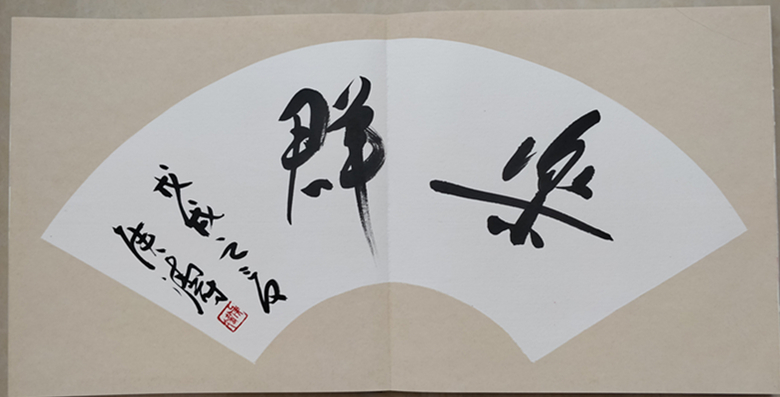 樂群
戊戌之夏